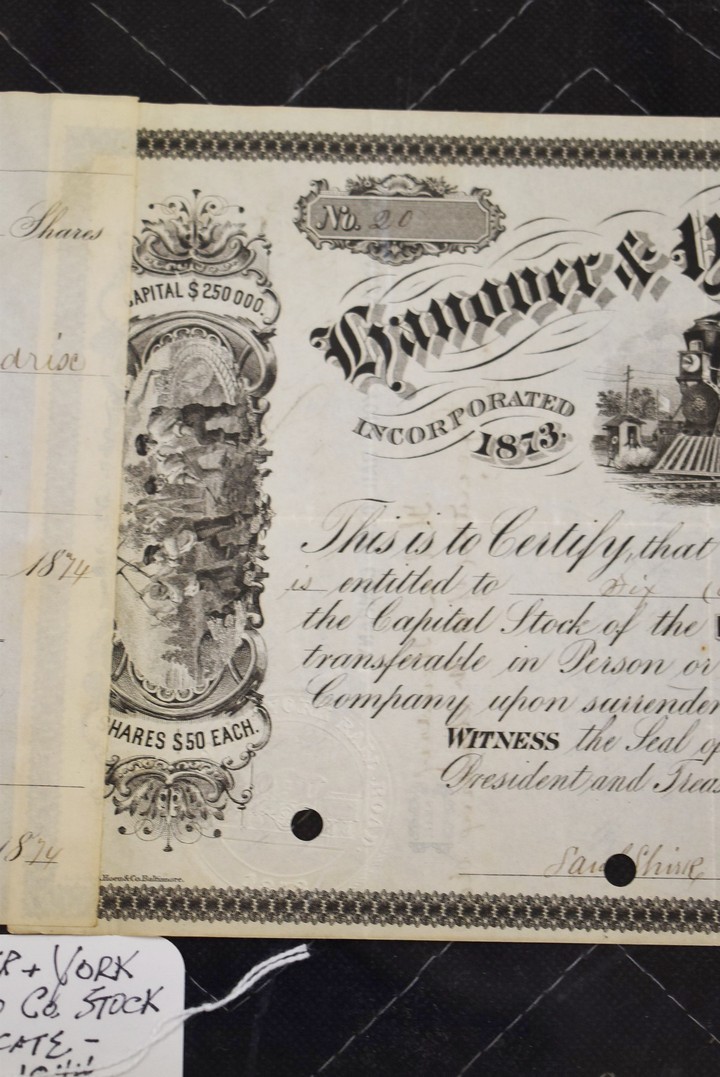 Shares
1874
1874
No. 20
CAPITAL $250000.
Hanover &
INCORPORATED
1873.
This is to Certify, that
is entitled to Six
the Capital Stock of the
transferable in Person or
Company upon surrender
SHARES $50 EACH.
WITNESS the Seal of
President and Treas
Hoen & Co. Baltimore.
+ YORK
Co. STOCK